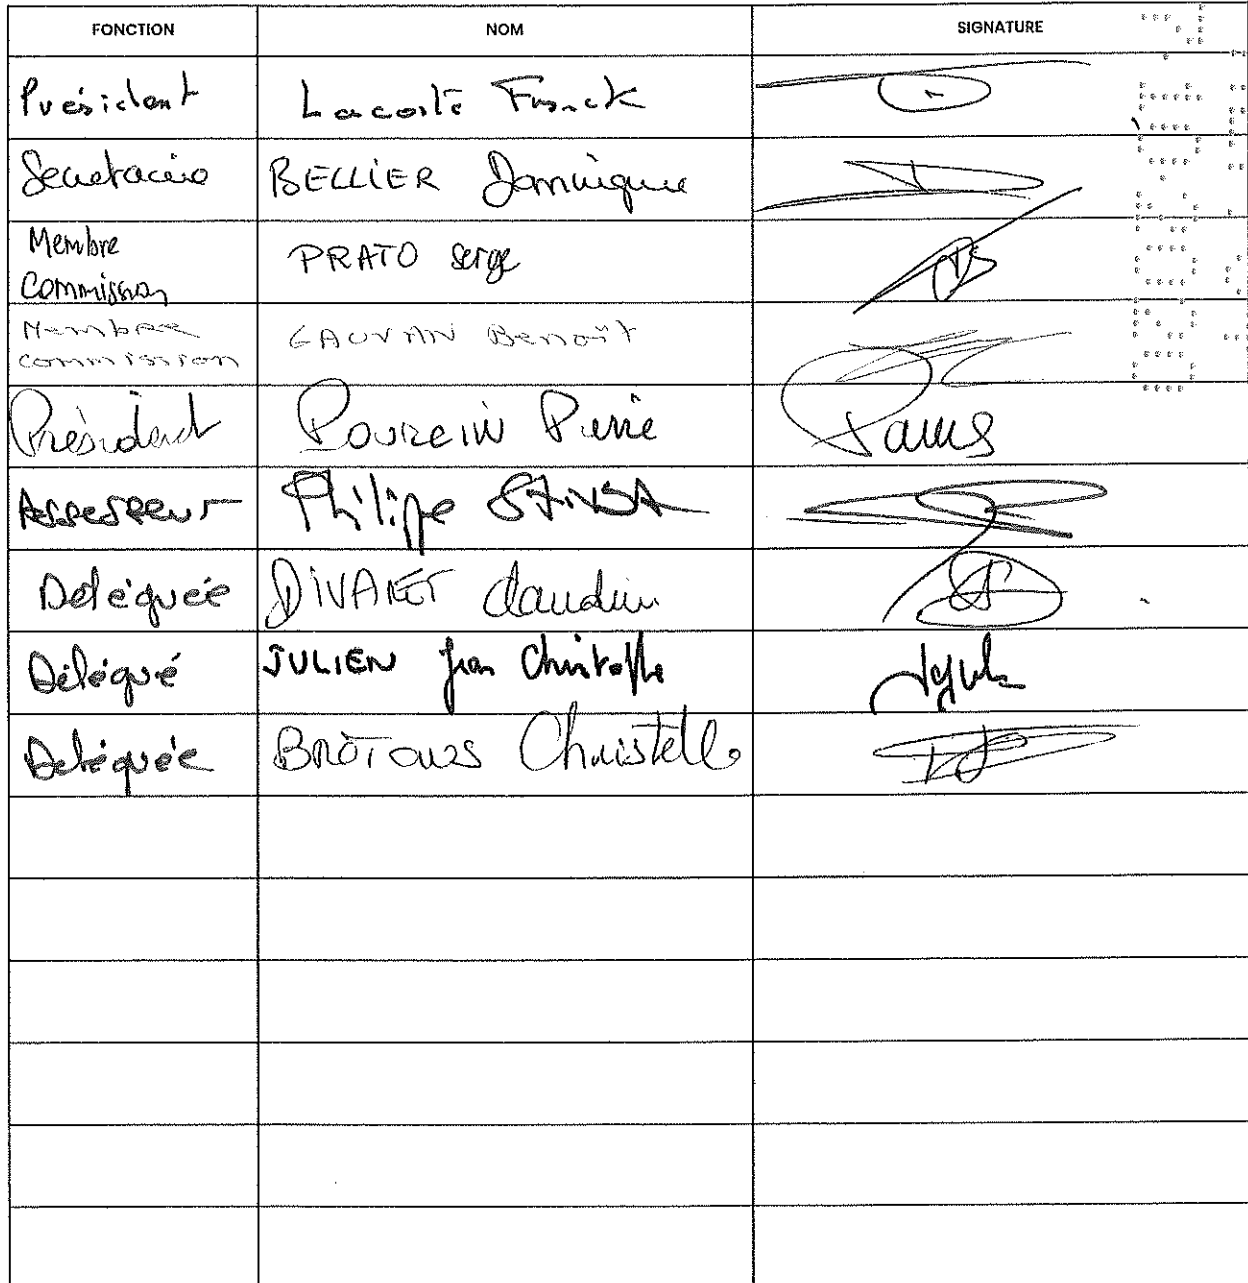 FONCTION NOM SIGNATURE
Président Lacoste Franck
Secretaire BELLIER Dominique
Membre
Commission
PRATO Serge
Membre
Commission
GAUVAN Benoît
Président POURCIN Pierre
Assesseur Philippe
Déléguée DIVARET Claudine
Délégué JULIEN Jean Christophe
Déléguée BROTONS Christelle